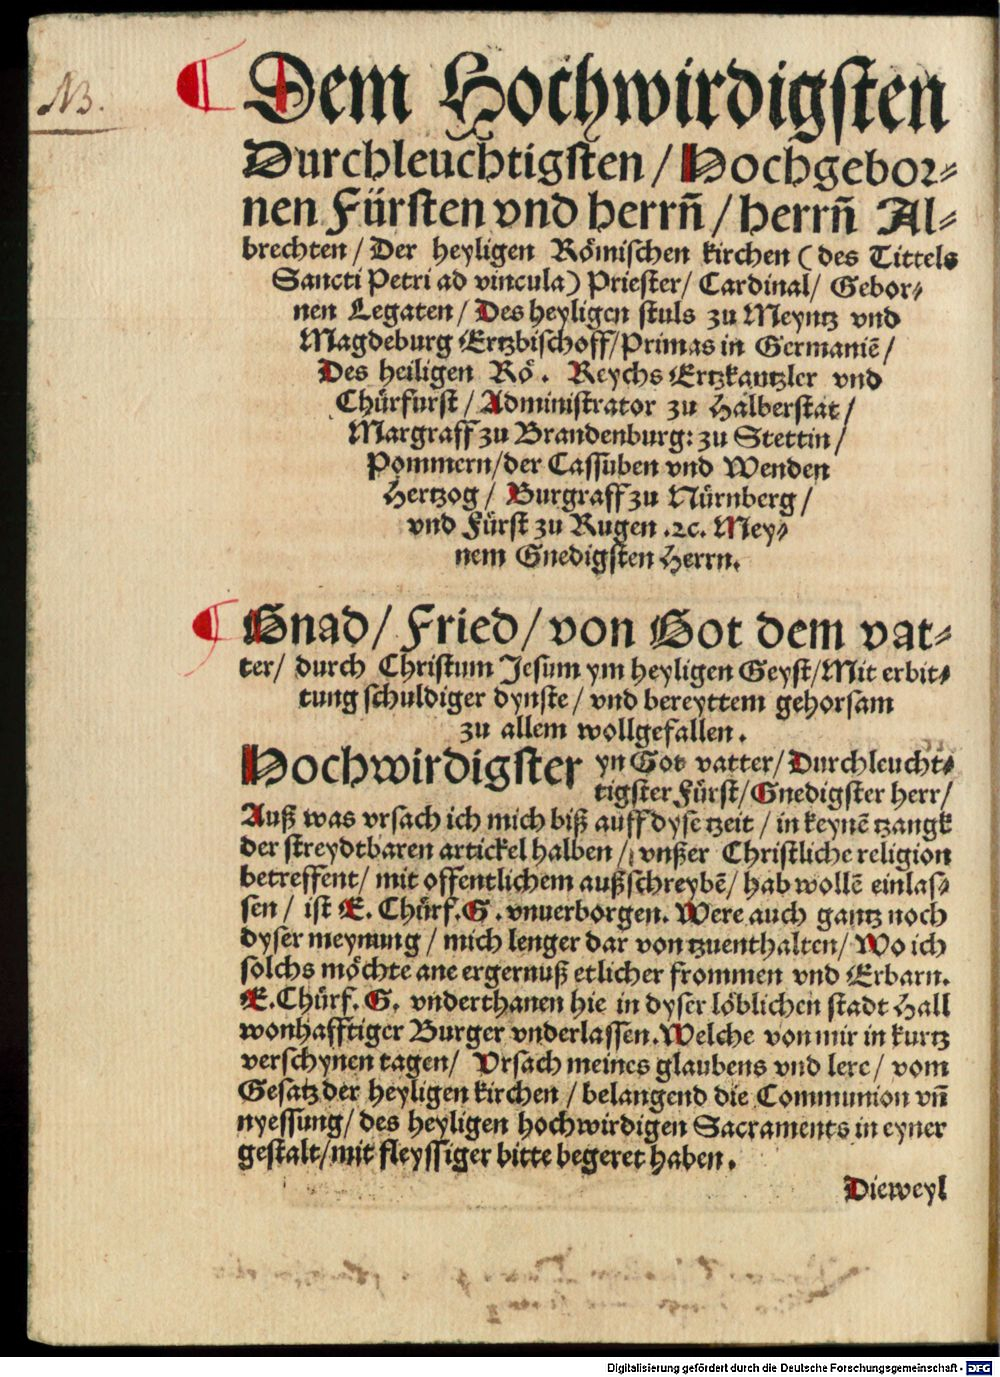 NB.
¶ Dem Hochwirdigsten
Durchleuchtigsten / Hochgebor⸗
nen Fürsten vnd herrñ / herrñ Al⸗
brechten / Der heyligen Römischen kirchen ( des Tittels
Sancti Petri ad vincula) Priester / Cardinal / Gebor⸗
nen Legaten / Des heyligen stuls zu Meyntz vnd
Magdeburg Ertzbischoff / Primas in Germaniē /
Des heiligen Rö. Reychs Ertzkantzler vnd
Chürfurst / Administrator zu Halberstat /
Margraff zu Brandenburg: zu Stettin /
Pommern / der Cassuben vnd Wenden
Hertzog / Burgraff zu Nürnberg /
vnd Fürst zu Rugen .ꝛc. Mey⸗
nem Gnedigsten Herrn.
¶ Gnad / Fried / von Got dem vat⸗
ter / durch Christum Jesum ym heyligen Geyst / Mit erbit⸗
tung schuldiger dynste / vnd bereyttem gehorsam
zu allem wollgefallen.
Hochwirdigster yn Got vatter / Durchleucht⸗
tigster Fürst / Gnedigster herr /
Auß was vrsach ich mich biß auff dyse tzeit / in keynē tzangk
der streydtbaren artickel halben / vnßer Christliche religion
betreffent / mit offentlichem außschreybē / hab wollē einlas⸗
sen / ist E. Chürf. G. vnuerborgen. Were auch gantz noch
dyser meynung / mich lenger dar von tzuenthalten / Wo ich
solchs möchte ane ergernuß etlicher frommen vnd Erbarn.
E. Chürf. G. vnderthanen hie in dyser löblichen stadt Hall
wonhafftiger Burger vnderlassen. Welche von mir in kurtz
verschynen tagen / Vrsach meines glaubens vnd lere / vom
Gesatz der heyligen kirchen / belangend die Communion vñ
nyessung / des heyligen hochwirdigen Sacraments in eyner
gestalt / mit fleyssiger bitte begeret haben.
Dieweyl
Digitalisierung gefördert durch die Deutsche Forschungsgemeinschaft - DFG